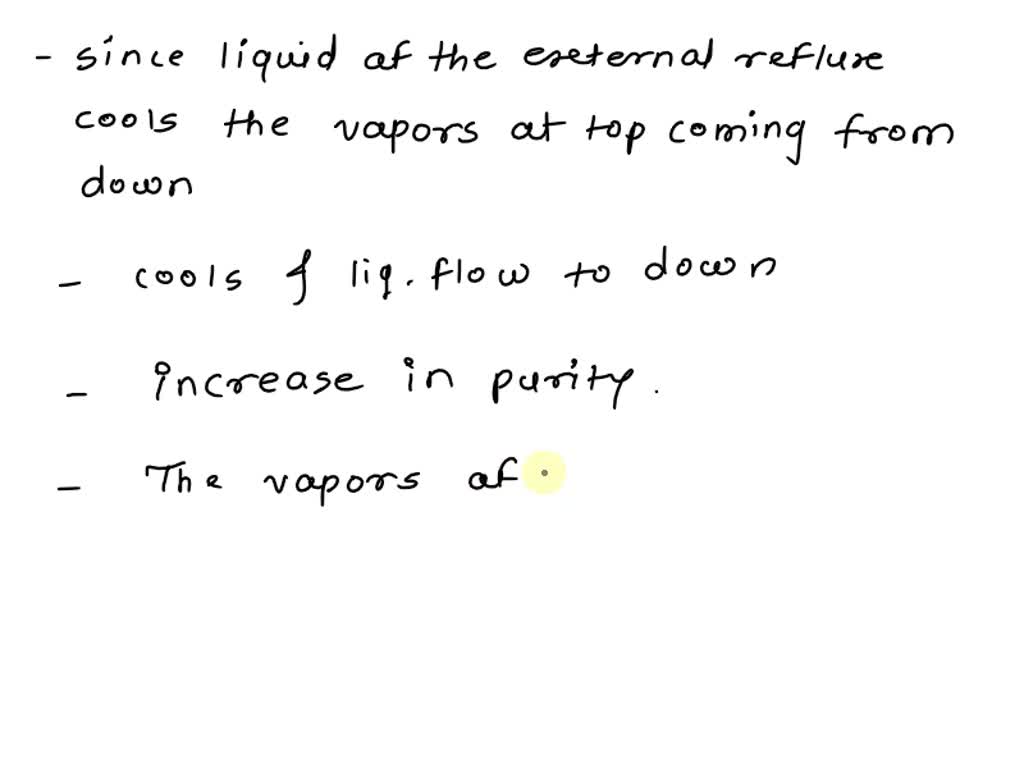 - since liquid of the external reflux
cools the vapors at top coming from
down
- cools & liq. flow to down
- increase in purity.
- The vapors of